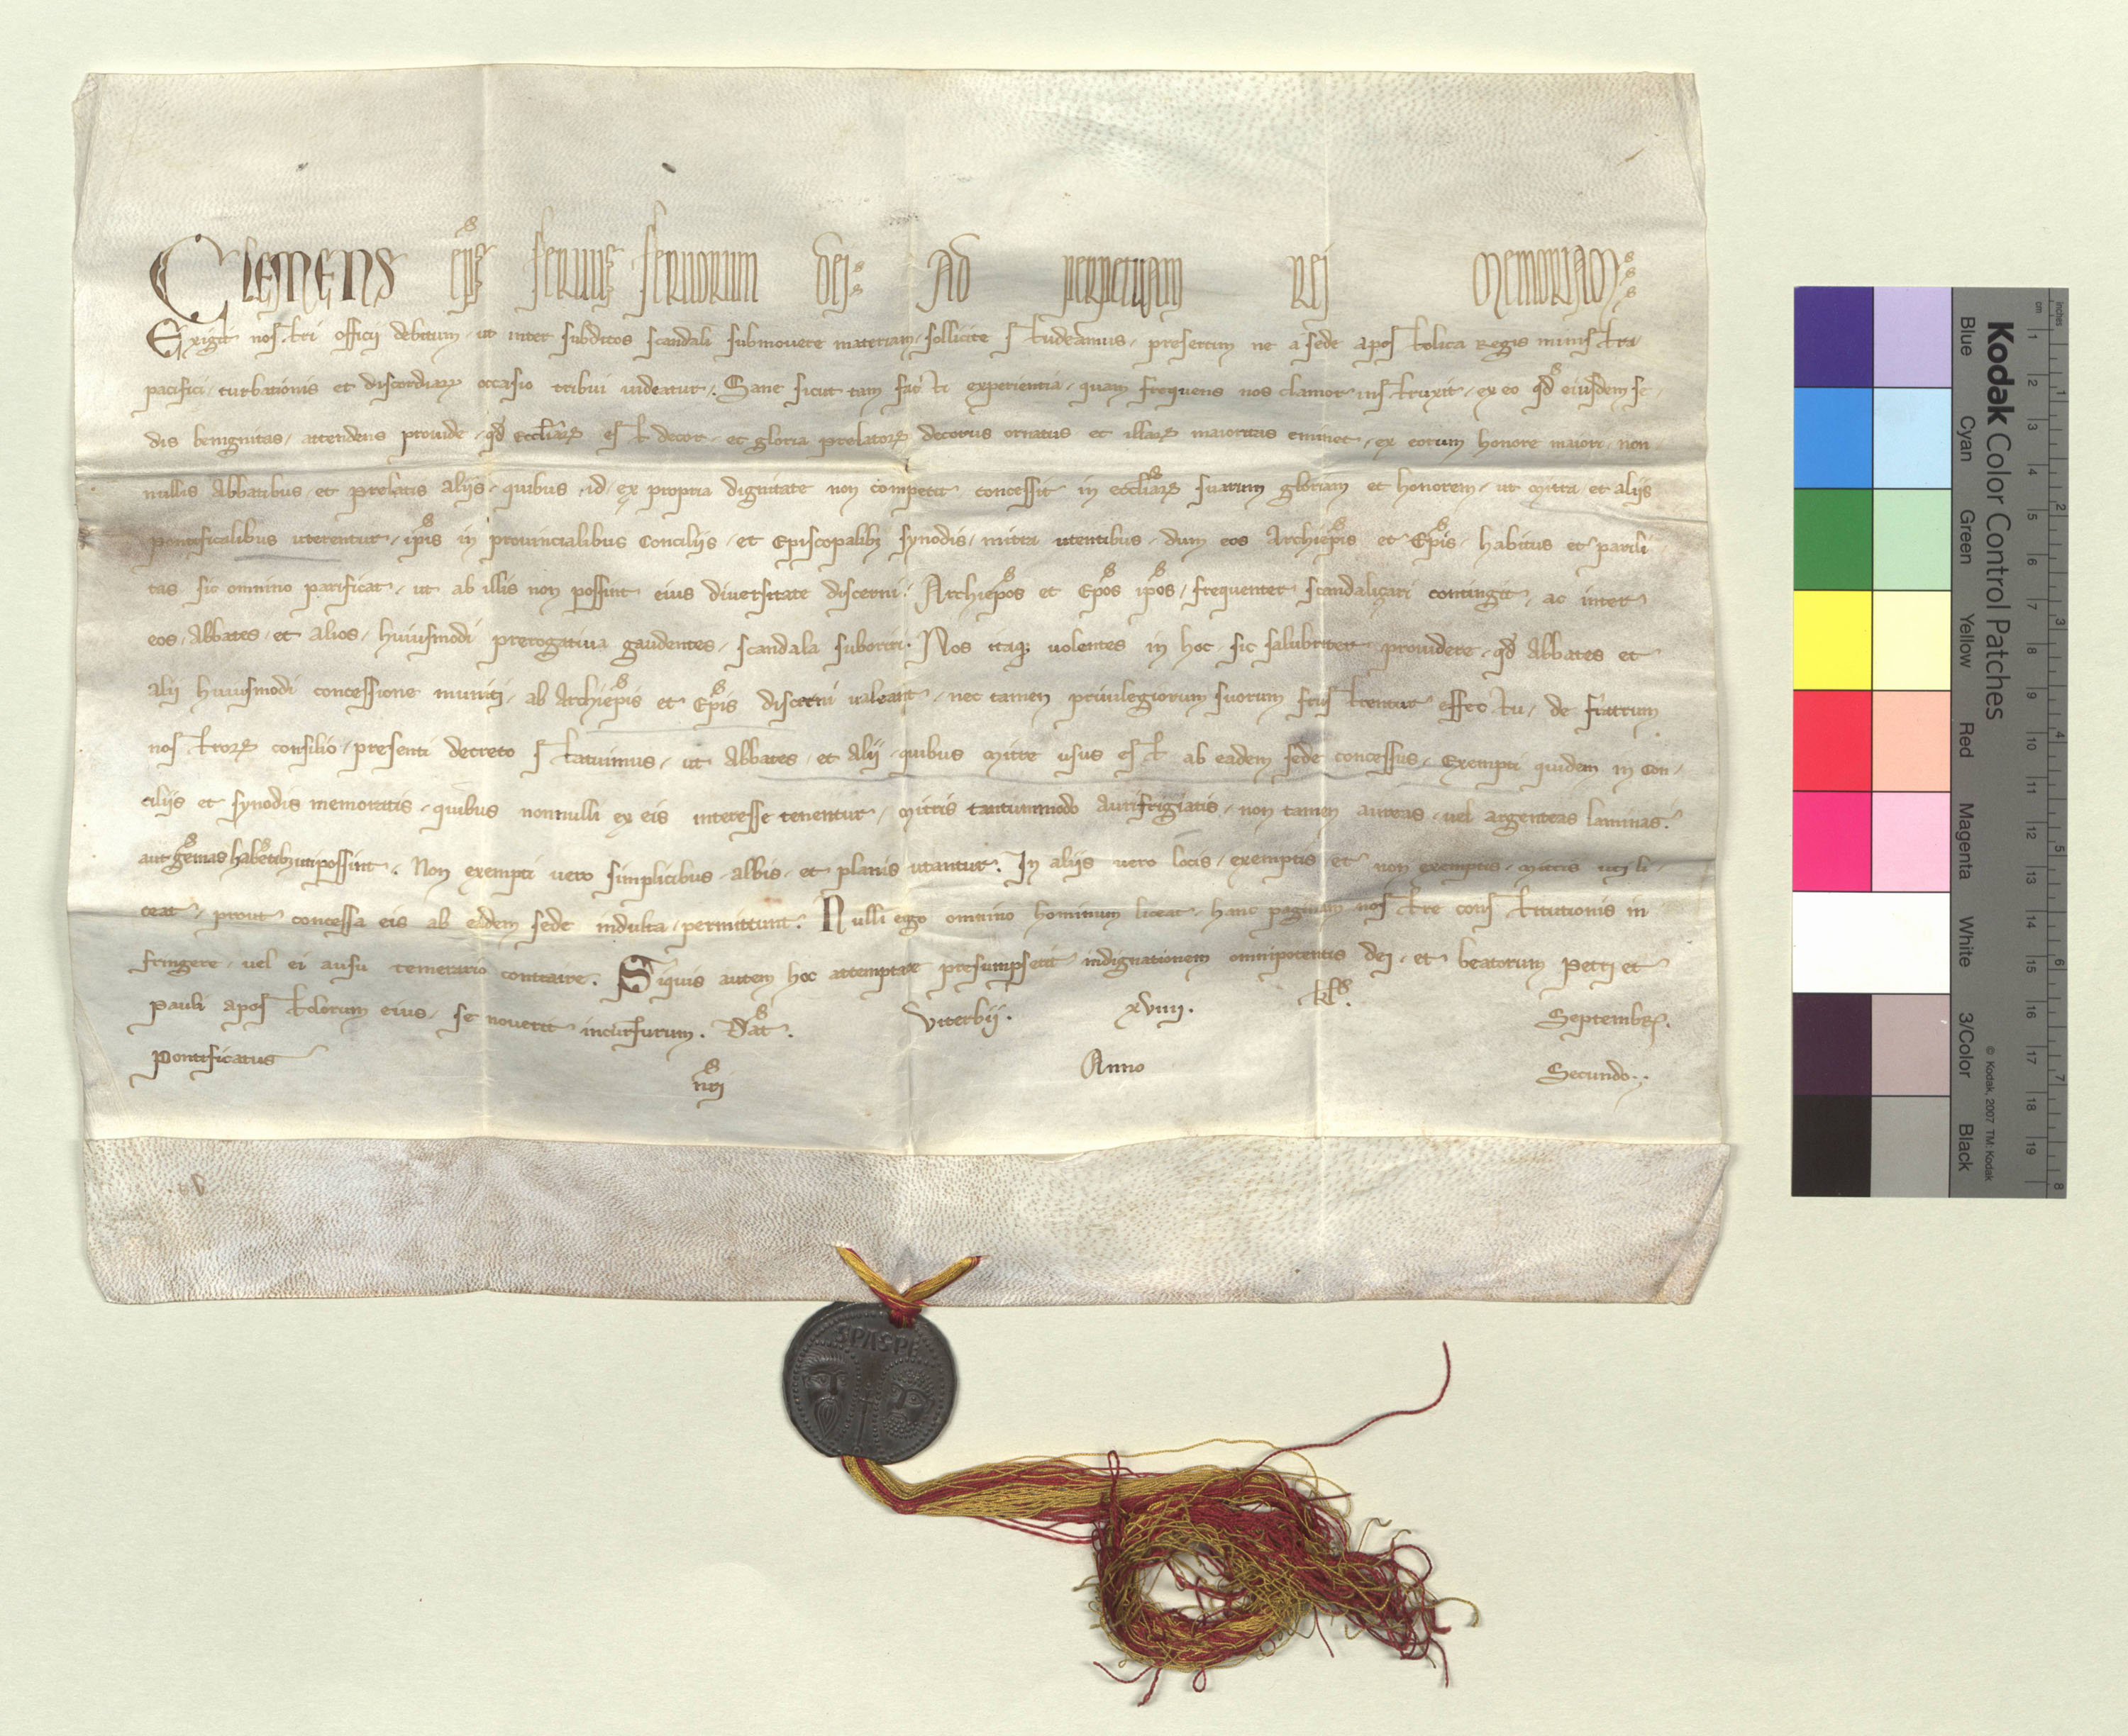 Clemens ep̄s seruus seruorum dei. Ad perpetuam rei memoriam.
Exigit nostri officij debitum, ut inter subditos scandali submouere materiam, sollicite studeamus, presertim ne a sede apostolica Regis ministra
pacifici, turbationis et discordiaꝝ occasio tribui uideatur. Sane sicut tam facti experientia, quam frequens nos clamor instruxit, ex eo qđ eiusdem se-
dis benignitas, attendens prouide, qđ eccl̄iaꝝ est decor, et gloria prelatoꝝ decorus ornatus et illaꝝ maioritas eminet, ex eorum honore maiori, non
nullis Abbatibus, et prelatis aliis, quibus, id, ex propria dignitate non competit concessit in eccl̄iaꝝ suarum gloriam et honorem, ut Mitra, et aliis
pontificalibus uterentur, ip̄is in prouincialibus Conciliis, et Episcopalibꝫ synodis, mitra utentibus, dum eos Archiep̄is et Ep̄is, habitus et parili
tas sic omnino parificat, ut ab illis non possint eius diuersitate discerni. Archiep̄os et Ep̄os ip̄os, frequenter scandalizari contingit, ac inter
eos, Abbates, et alios, huiusmodi prerogatiua gaudentes, scandala suboriri. Nos itaqꝫ uolentes in hoc, sic salubriter prouidere, qđ Abbates et
alii huiusmodi concessione muniti, ab Archiep̄is et Ep̄is discerni ualeant, nec tamen priuilegiorum suorum frustrentur effectu, de fratrum
nostroꝝ consilio, presenti decreto statuimus, ut Abbates, et Alij, quibus Mitre usus est ab eadem sede concessus, Exempti quidem in Con-
ciliis et synodis memoratis, quibus nonnulli ex eis interesse tenentur, Mitris tantummodo Aurifrigiatis, non tamen aureas, uel argenteas laminas,
aut gēmas habētibꝫ uti possint. Non exempti uero simplicibus, albis, et planis utantur. In aliis uero locis, exemptis, et non exemptis, Mitris uti li-
ceat, prout concessa eis ab eadem sede indulta, permittunt. Nulli ergo omnino hominum liceat, hanc paginam nostre constitutionis in
fringere, uel ei ausu temerario contraire. Siquis autem hoc attemptare presumpserit indignationem omnipotentis dei, et beatorum Petri et
Pauli apostolorum eius, se nouerit incursurum. Dat̄. Viterbij. xviiij. kl̄. Septembꝝ.
Pontificatus nr̄i Anno Secundo.
SPASPE
Kodak Color Control Patches
Blue Cyan Green Yellow Red Magenta White 3/Color Black
© Kodak, 2007 TM: Kodak
inches 1 2 3 4 5 6 7 8
cm 1 2 3 4 5 6 7 8 9 10 11 12 13 14 15 16 17 18 19